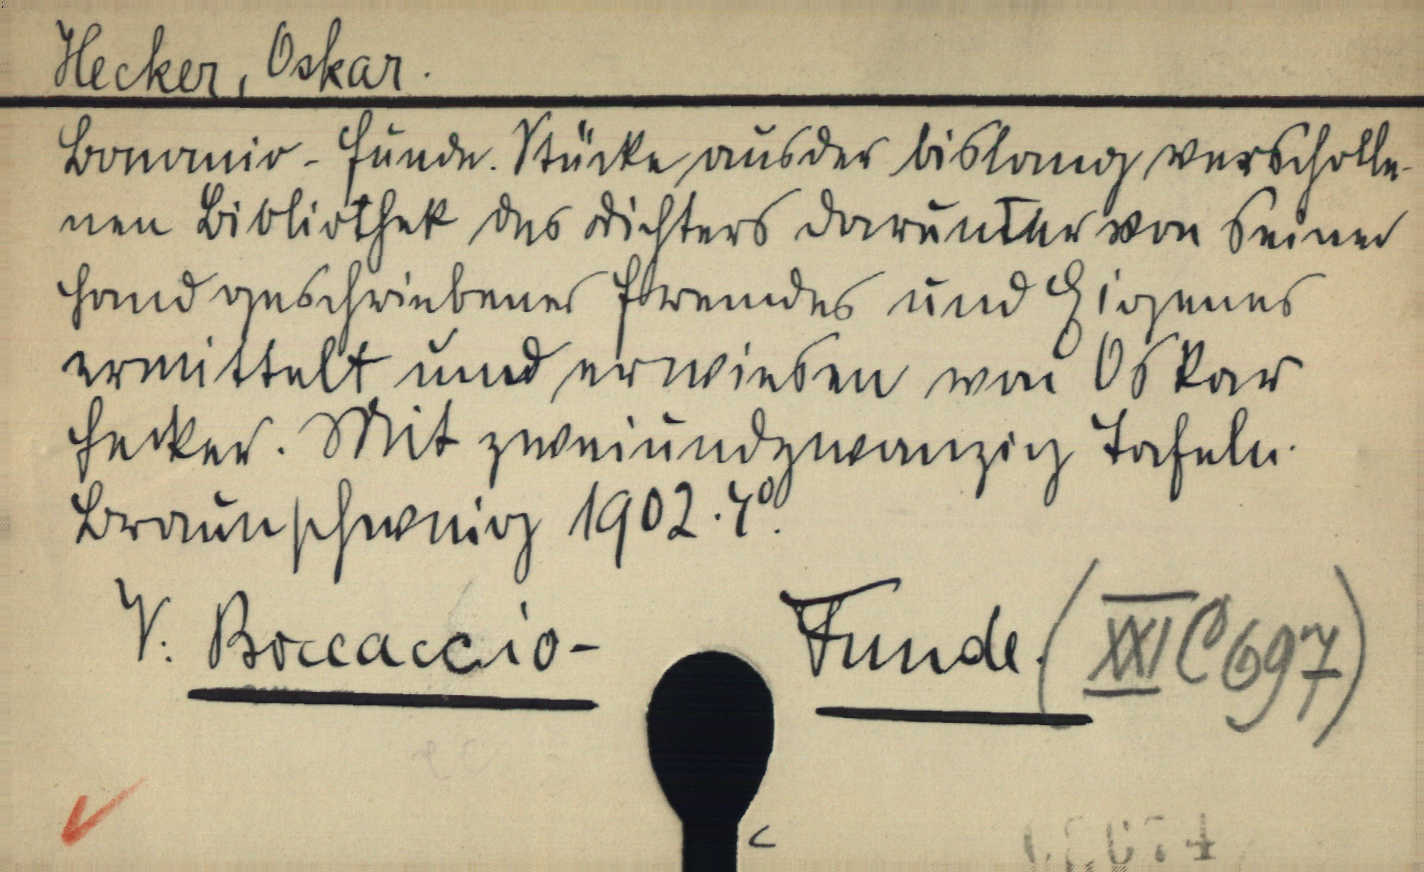 Hecker, Oskar.
Boccaccio-Funde. Stücke aus der bislang verscholle-
nen Bibliothek des Dichters darunter von seiner
Hand geschriebenes Fremdes und Eigenes
ermittelt und erwiesen von Oskar
Hecker. Mit zweiundzwanzig Tafeln.
Braunschweig 1902. 4°.
V. Boccaccio-Funde. (XXI C 697)